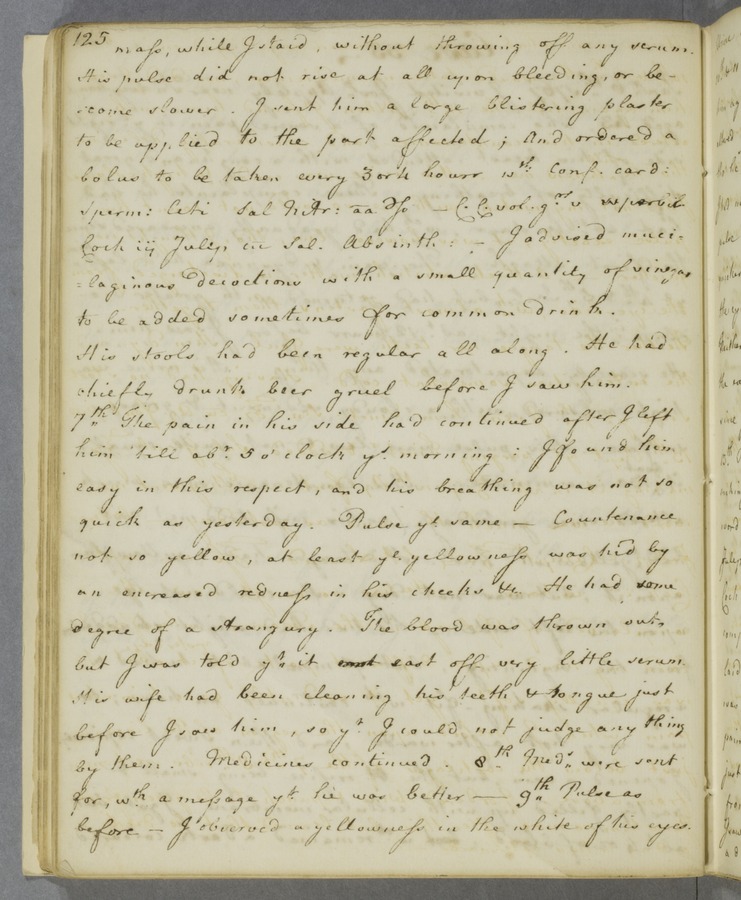 125
mass, while I staid, without throwing off any serum.
His pulse did not rise at all upon bleeding, or be-
-come slower. I sent him a large blistering plaster
to be applied to the part affected; And ordered a
bolus to be taken every 3 or 4 hours wth. Conf. card:
Sperm: Ceti Sal Nitr: aa ℈ſs — C.C. vol. grs v
Coch iij Julep cu Sal. Absinth: — I advised muci-
-laginous Decoctions with a small quantity of vinegar
to be added sometimes for common drink.
His stools had been regular all along. He had
chiefly drunk beer gruel before I saw him.
7th The pain in his side had continued after I left
him 'till abt. 5 o'clock ys. morning: I found him
easy in this respect, and his breathing was not so
quick as yesterday. Pulse ye same — Countenance
not so yellow, at least ye yellowness was hid by
an encreased redness in his cheeks &c. He had some
degree of a strangury. The blood was thrown out,
but I was told yt. it cast off very little serum.
His wife had been cleaning his teeth & tongue just
before I saw him, so yt. I could not judge any thing
by them. Medicines continued. 8th Meds. were sent
for, wth a message yt. he was better — 9th Pulse as
before — I observed a yellowness in the white of his eyes.